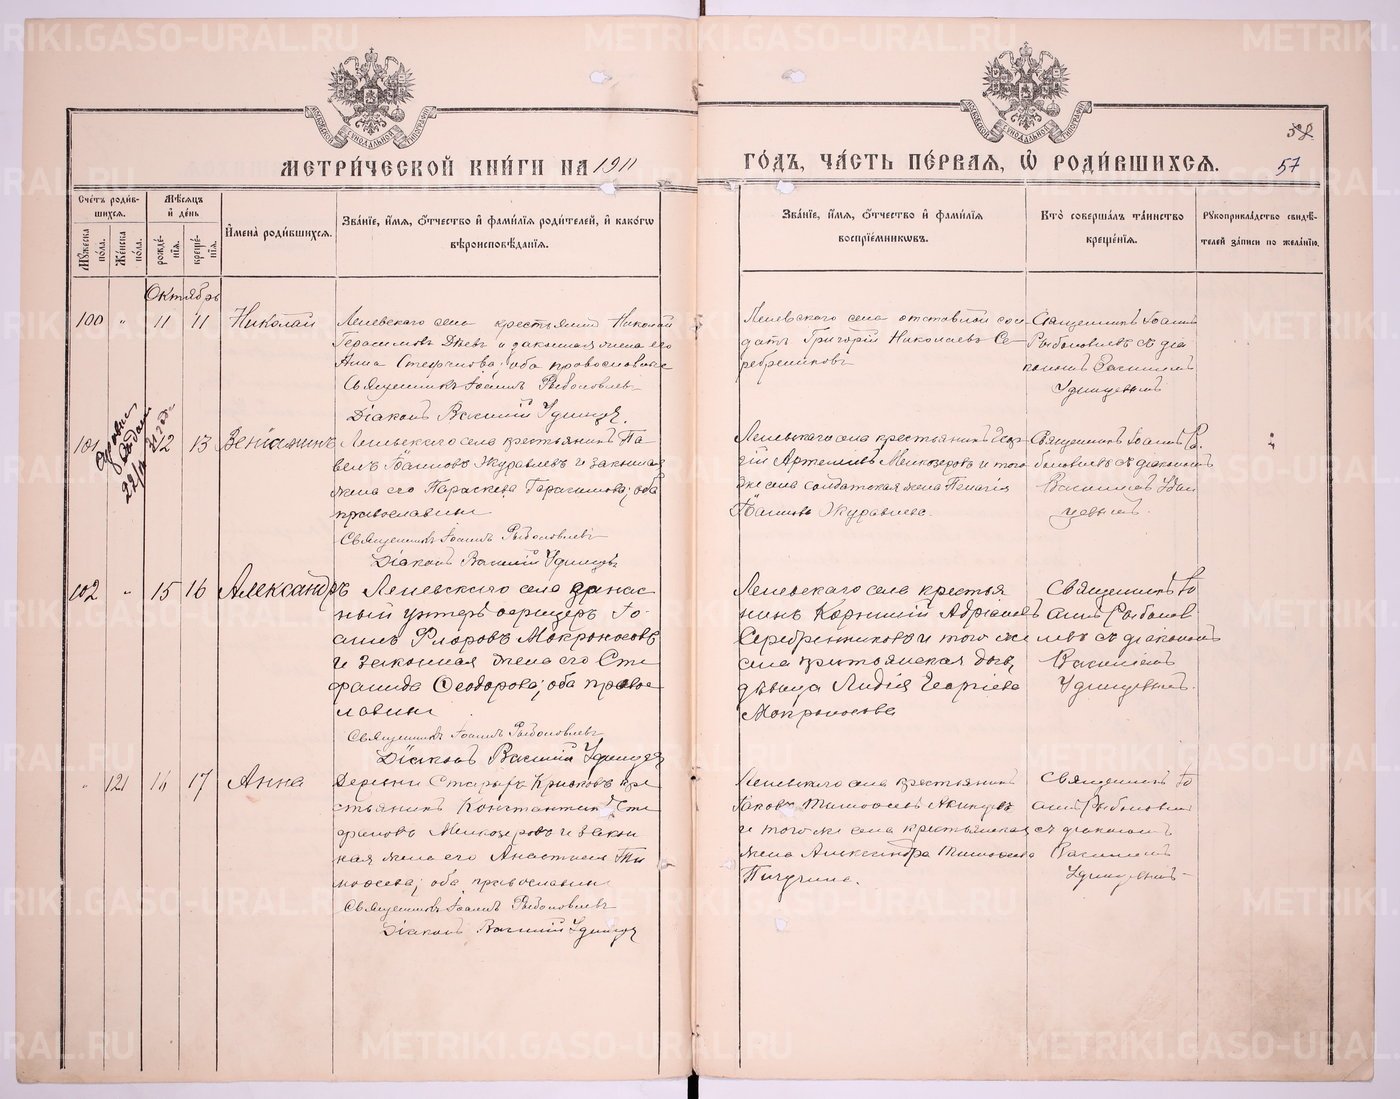 МЕТРИ́ЧЕСКОЙ КНИ́ГИ НА 1911
ГО́ДЪ, ЧА́СТЬ ПЕ́РВАЯ, Ѽ РОДИ́ВШИХСЯ.
57
Счетъ роди́в-
шихся.
Мѣсяцъ
и҆ день
Мꙋжеска
пола.
Женска
пола.
рожде-
нїя.
креще-
нїя.
И҆мена̀ роди́вшихся.
Зва́нїе, и҆́мя, ѻ҆́тчество и҆ фами́лїя роди́телей, и҆ како́гѡ
вѣроисповѣ́данїя.
Зва́нїе, и҆́мя, ѻ҆́тчество и҆ фами́лїя
воспрїе́мникѡвъ.
Кто̀ соверша́лъ та́инство
креще́нїя.
Рꙋкоприкла́дство свидѣ́-
телей за́писи по жела́нїю.
Октябрь
100 " 11 11 Николай
Леневскаго села крестьянинъ Николай
Герасимовъ и законная жена его
Анна Стефанова; оба православные
Священникъ Іоаннъ Рыболовлевъ
Діаконъ Василий Удинцев.
Леневскаго села отставной сол
датъ Григорій Николаевъ Се-
ребренниковъ
Священникъ Іоаннъ
Рыболовлевъ съ діа
кономъ Василіемъ
Удинцевымъ
101 12 13 Веніаминъ
Леневскаго села крестьянинъ Па-
велъ Іоанновъ Журавлевъ и законная
жена его Параскева Герасимова; оба
православны
Священникъ Іоаннъ Рыболовлевъ
Діаконъ Василій Удинцевъ
Леневскаго села крестьянинъ Геор-
гій Артемьевъ Мелкозеровъ и того
же села солдатская жена Пелагія
Іоаннова Журавлева.
Священникъ Іоаннъ Ры-
боловлевъ съ діакономъ
Василіемъ Удин
цевымъ.
102 " 15 16 Александръ
Леневскаго села запас
ный унтеръ офицеръ Іо-
аннъ Флоровъ Мокроносовъ
и законная жена его Сте
фанида Ѳеодорова; оба право
славны
Священникъ Іоаннъ Рыболовлевъ
Діаконъ Василій Удинцев
Леневскаго села крестья
нинъ Корнилій Адріановъ
Серебренниковъ и того же
села крестьянская дочь,
дѣвица Лидія Георгіева
Мокроносова
Священникъ Іо
аннъ Рыболов
левъ съ діакономъ
Василіемъ
Удинцевымъ.
" 121 14 17 Анна
Деревни Старыхъ Кривковъ кре
стьянинъ Константинъ Сте
фановъ Мелкозеровъ и закон
ная жена его Анастасія Ти
моѳеева; оба православны
Священникъ Іоаннъ Рыболовлевъ
Діаконъ Василій Удинцев
Леневскаго села крестьянинъ
Іаковъ Тимоѳеевъ Акинцевъ
и того же села крестьянская
жена Александра Тимоѳеева
Пичугина.
Священникъ Іо
аннъ Рыболовлевъ
съ діакономъ
Василіемъ
Удинцевымъ
METRIKI.GASO-URAL.RU